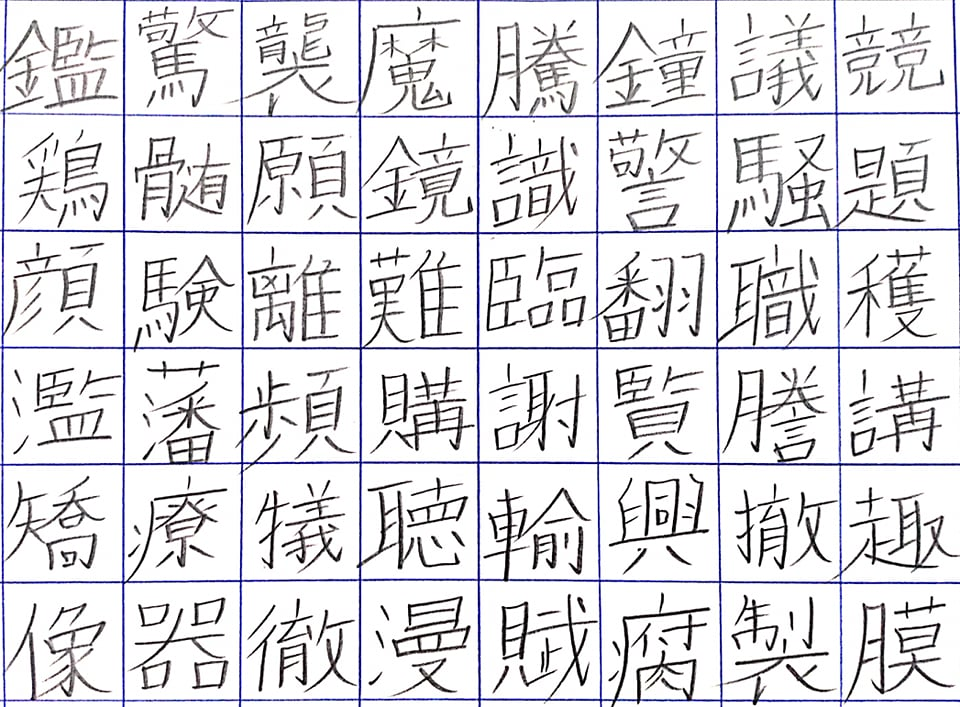 鑑驚襲魔騰鐘議競
鶏髄願鏡識警騒題
顔験離難臨翻職穫
濫藩頻購謝覧謄講
矯療犠聴輸興撤趣
像器徹漫賦腐製膜